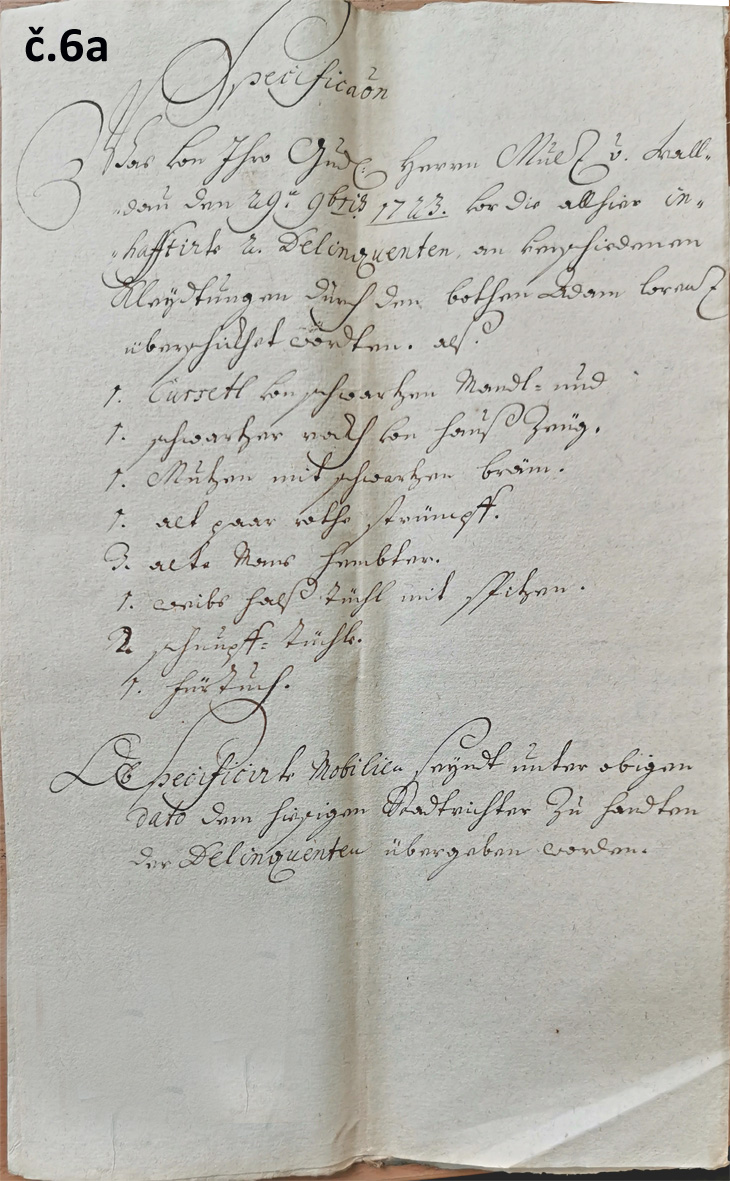 č.6a
Specificaōn
Was von Ihro Gnd: Herrn Mulz v. Wall-
dau den 29ten 9bris 1723. vor die allhier in-
hafftirte 2. Delinquenten, an verschiedenen
Kleydtungen durch den bothen Adam Lorenz
überschükhet wordten. alß.
1. Cursetl von schwartzen Mandl- und
1. schwartzer rokh von hauß Zeüg.
1. Mützen mit schwartzen bräm.
1. alt paar rothe strümpff.
3. alte Mans hembter.
1. weibs halß tüchl mit spitzen.
2. schnupff-tüchle.
1. fürtuch.
specificirte Mobilien seyndt unter obigen
dato dem hiesigen Stadtrichter zu handten
der Delinquenten übergeben worden.